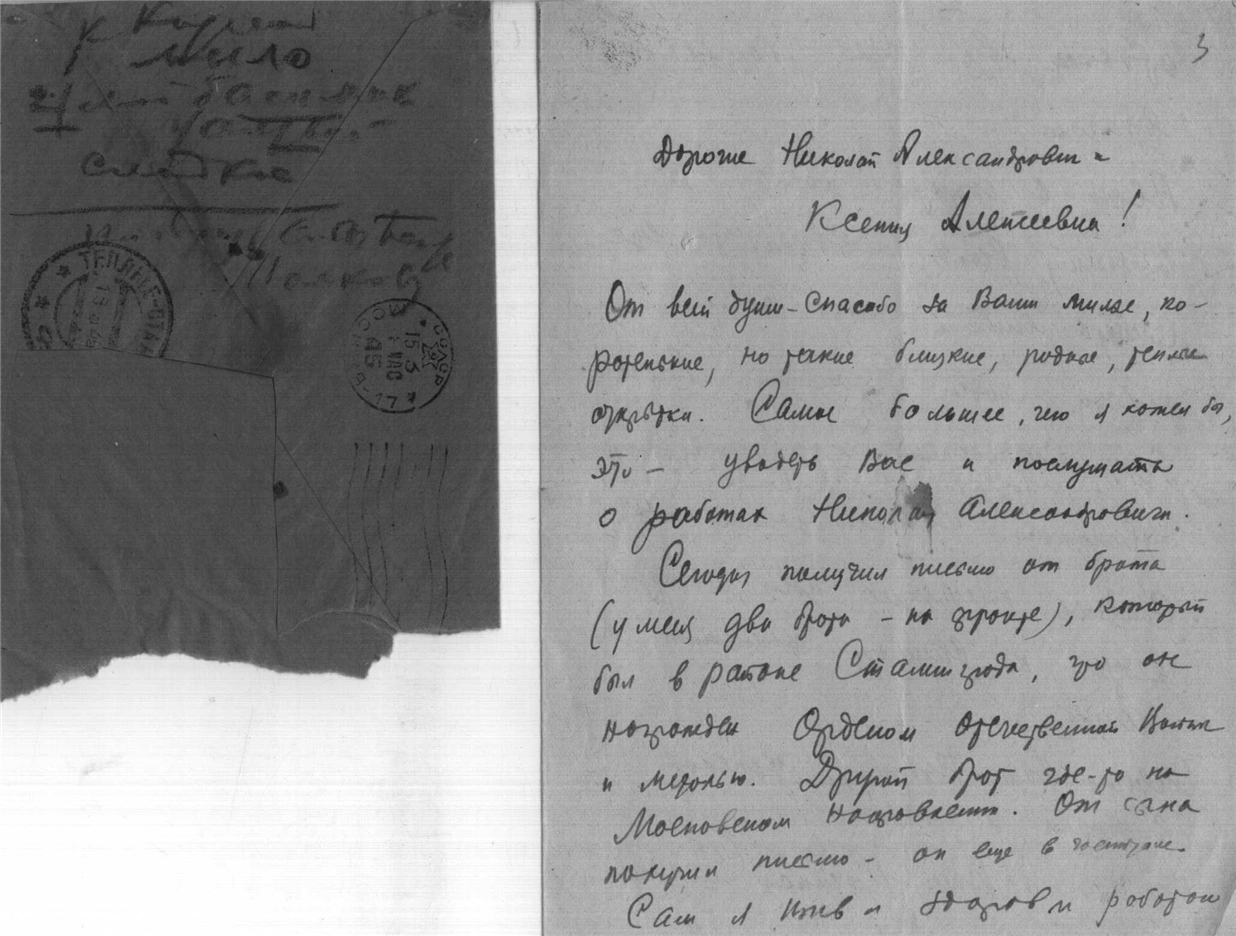 мыло
сладкое
МОСКВА
15 3
45
3
Дорогие Николай Александрович и
Ксения Алексеевна!
От всей души - спасибо за Ваши милые, ко-
ротенькие, но такие близкие, родные, теплые
открытки. Самое большее, чего я хотел бы,
это - увидеть Вас и послушать
о работах Николая Александровича.
Сегодня получил письмо от брата
(у меня два брата - на фронте), который
был в районе Сталинграда, что он
награжден Орденом Отечественной Войны
и медалью. Другой брат где-то на
Московском направлении. От сына
получил письмо - он еще в госпитале.
Сам я жив и здоров и работаю